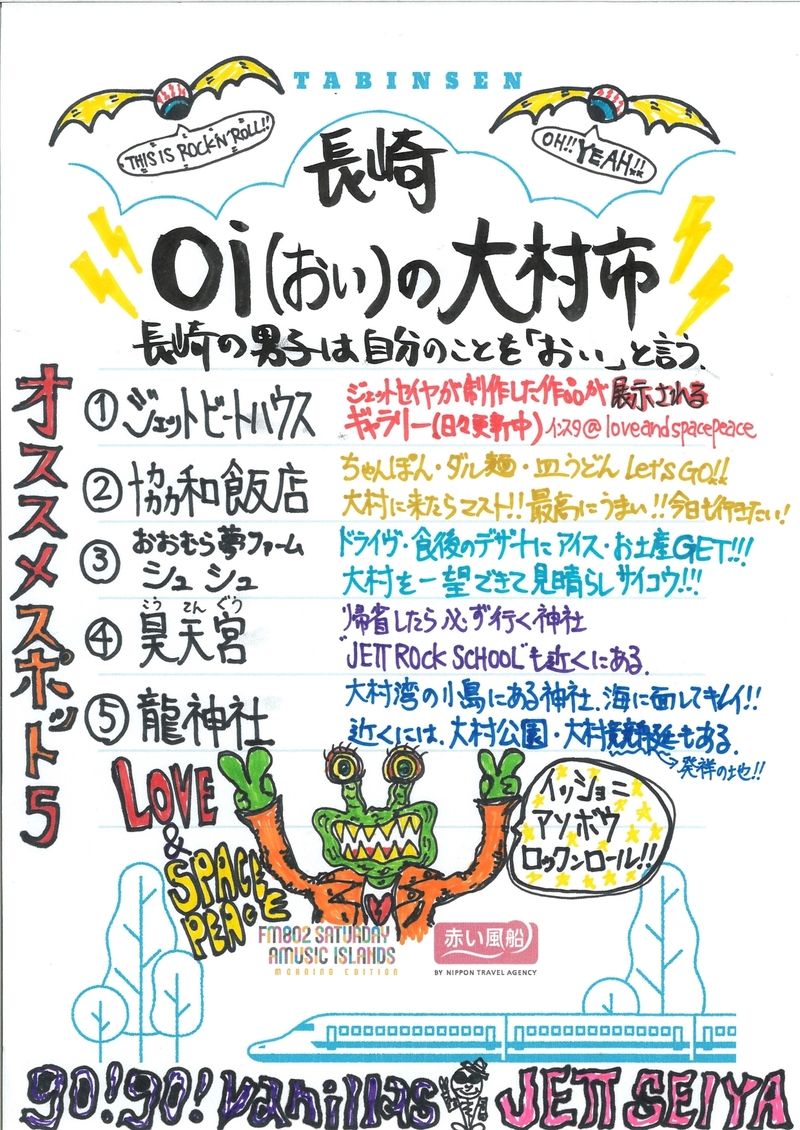 TABINSEN
THIS IS ROCK'N'ROLL!!
OH!! YEAH!!
長崎
Oi(おい)の大村市
長崎の男子は自分のことを「おい」と言う.
オススメスポット5
① ジェットビートハウス
ジェットセイヤが制作した作品が展示される
ギャラリー(日々更新中)インスタ@loveandspacepeace
② 協和飯店
ちゃんぽん・ダル麺・皿うどん Let's GO!!
大村に来たらマスト!!最高にうまい!!今日も行きたい!
③ おおむら夢ファーム
シュシュ
ドライヴ・食後のデザートにアイス・お土産GET!!!
大村を一望できて見晴らしサイコウ!!!
こうてんぐう
④ 昊天宮
帰省したら必ず行く神社
"JETT ROCK SCHOOL"も近くにある.
⑤ 龍神社
大村湾の小島にある神社.海に面してキレイ!!
近くには.大村公園・大村もある.
発祥の地!!
LOVE
&
SPACE
PEACE
イッショニ
アソボウ
ロックンロール!!
FM802 SATURDAY
AMUSIC ISLANDS
MORNING EDITION
赤い風船
BY NIPPON TRAVEL AGENCY
go!go!vanillas
JETT SEIYA